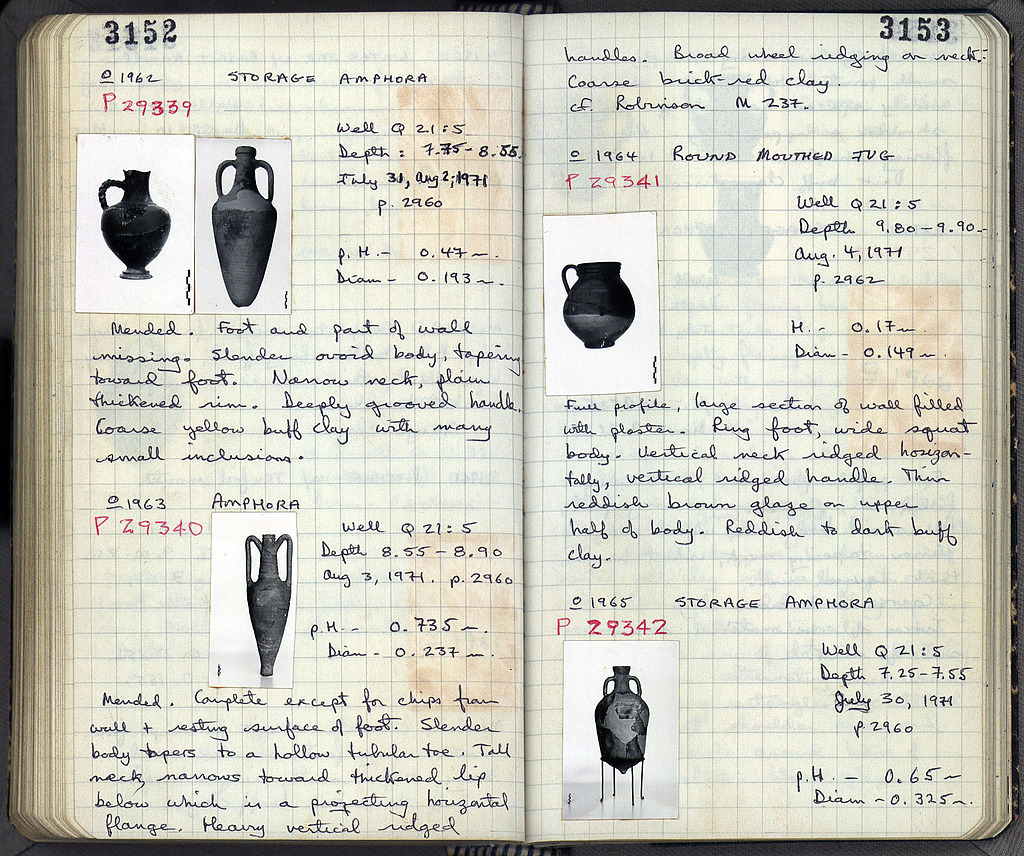 3152
O 1962 STORAGE AMPHORA
P 29339
Well Q 21:5
Depth: 7.75-8.55
July 31, Aug 2, 1971
p. 2960
p. H. - 0.47 m.
Diam - 0.193 m.
Mended. Foot and part of wall
missing. Slender ovoid body, tapering
toward foot. Narrow neck, plain
thickened rim. Deeply grooved handle.
Coarse yellow buff clay with many
small inclusions.
O 1963 AMPHORA
P 29340
Well Q 21:5
Depth 8.55-8.90
Aug 3, 1971. p. 2960
p.H. - 0.735 m.
Diam - 0.237 m.
Mended. Complete except for chips from
wall + resting surface of foot. Slender
body tapers to a hollow tubular toe. Tall
neck, narrows toward thickened lip
below which is a projecting horizontal
flange. Heavy vertical ridged
3153
handles. Broad wheel ridging on neck.
Coarse brick-red clay.
cf. Robinson M 237.
O 1964 ROUND MOUTHED JUG
P 29341
Well Q 21:5
Depth 9.80-9.90
Aug. 4, 1971
p. 2962
H. - 0.17 m.
Diam - 0.149 m.
Full profile, large section of wall filled
with plaster. Ring foot, wide squat
body. Vertical neck ridged horizon-
tally, vertical ridged handle. Thin
reddish brown glaze on upper
half of body. Reddish to dark buff
clay.
O 1965 STORAGE AMPHORA
P 29342
Well Q 21:5
Depth 7.25-7.55
July 30, 1971
p. 2960
p.H. - 0.65 m
Diam - 0.325 m.